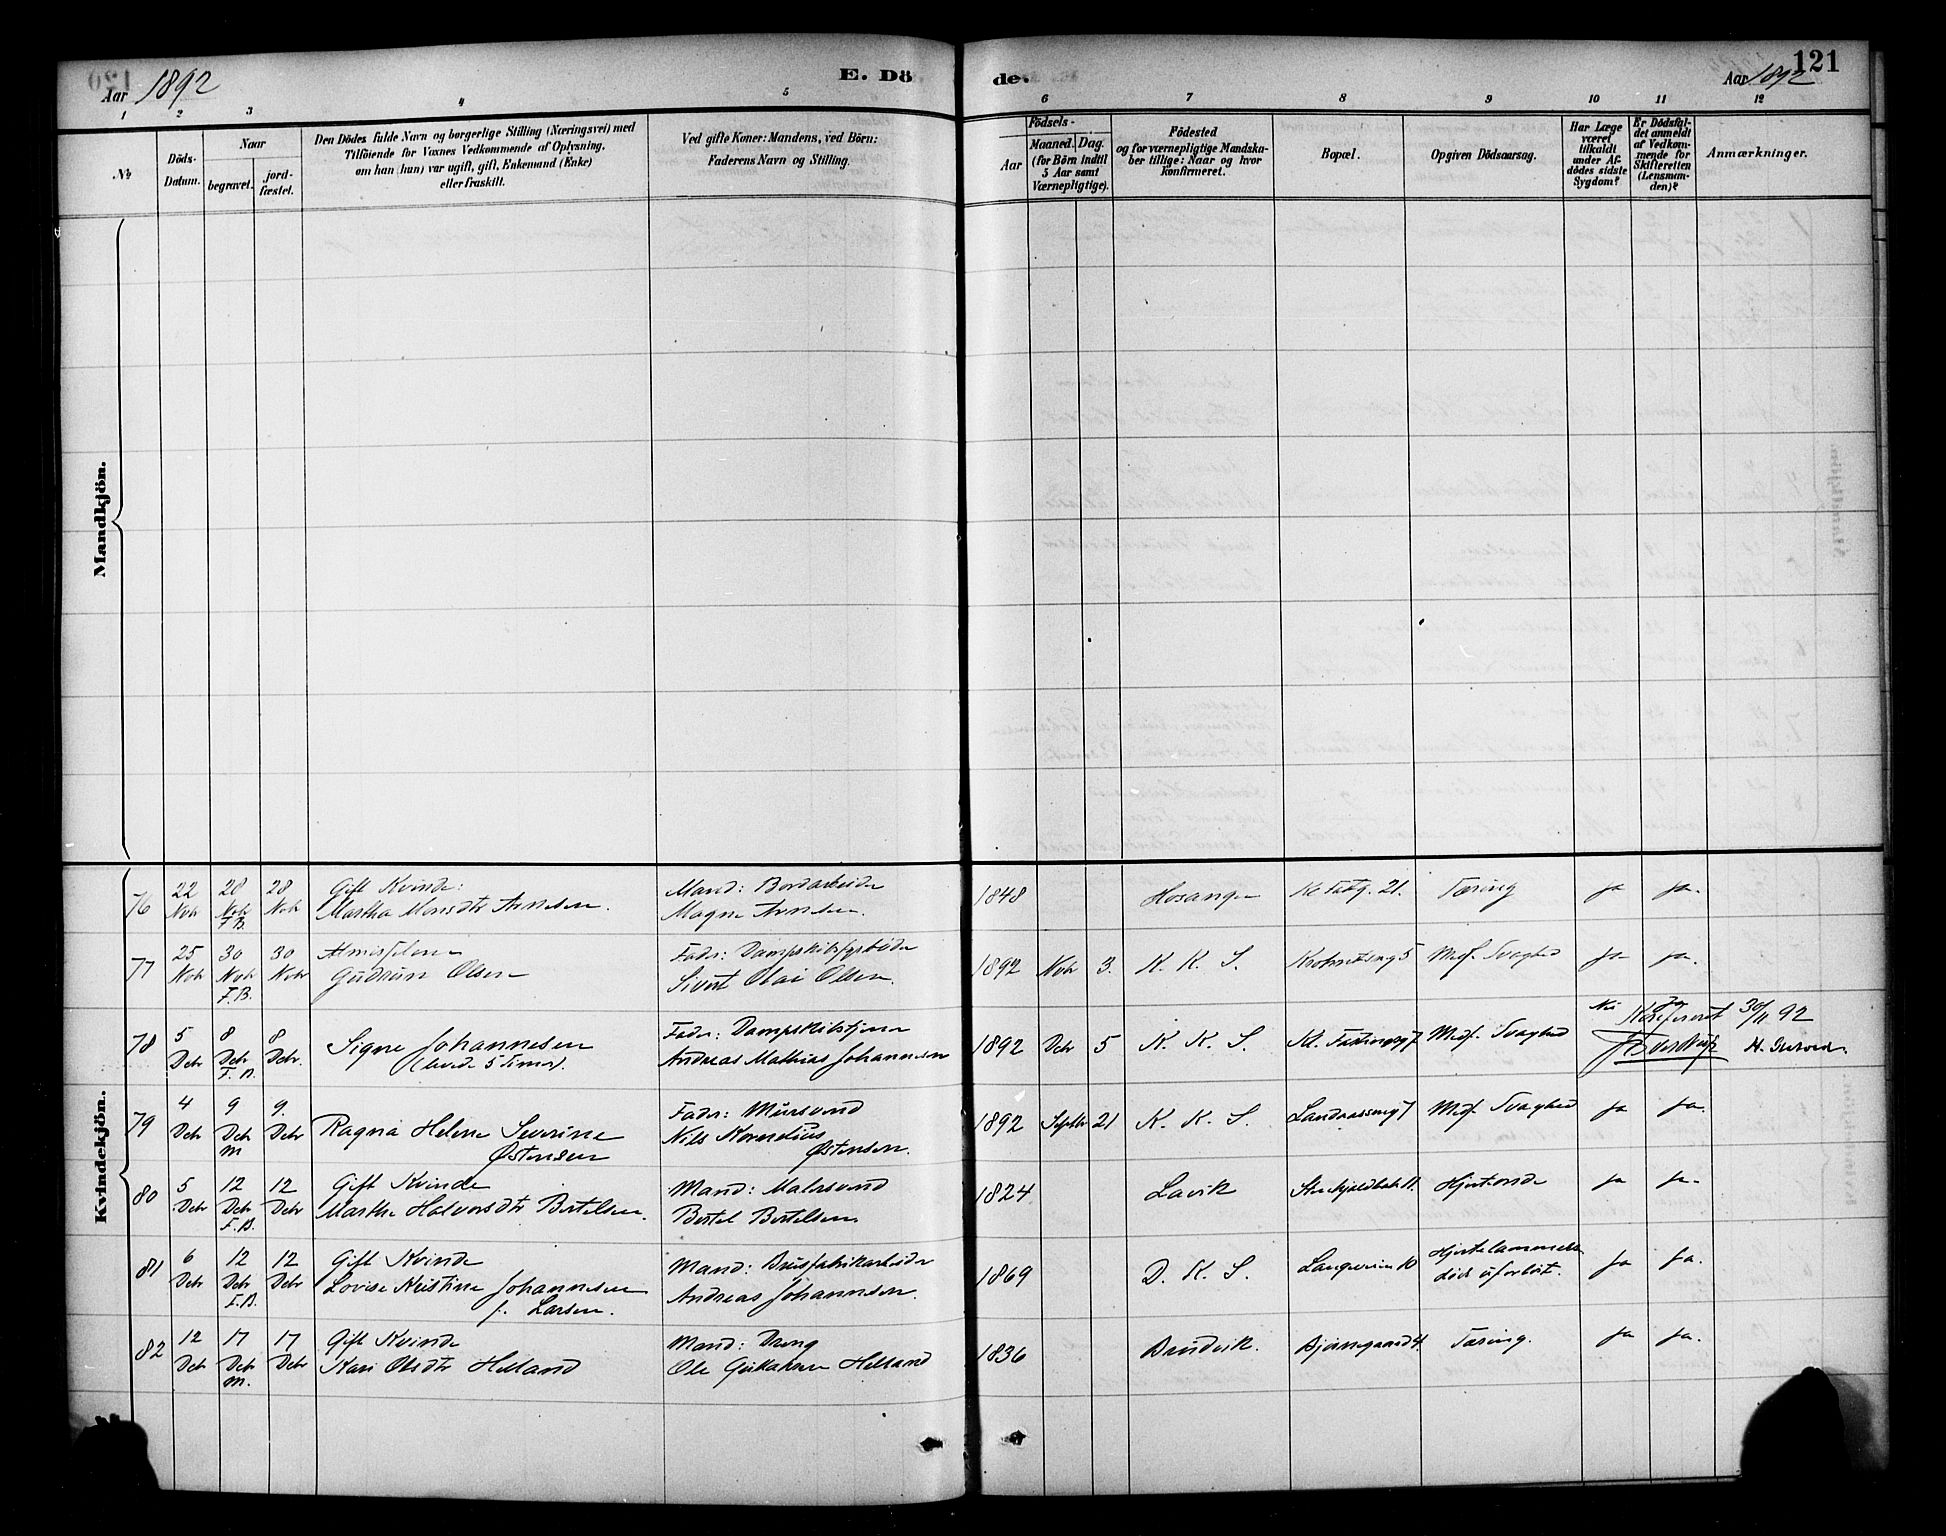 Aar 1892
E. Dö
de.
Aar 1892
121
1
2
3
4
5
6
7
8
9
10
11
12
No
Döds-
Datum.
Naar
begravet.
jord-
fæstet.
Den Dödes fulde Navn og borgerlige Stilling (Næringsvei) med
Tilföiende for Voxnes Vedkommende af Oplysning,
om han (hun) var ugift, gift, Enkemand (Enke)
eller fraskilt.
Ved gifte Koner: Mandens, ved Börn:
Faderens Navn og Stilling.
Födsels-
Aar
Maaned.
Dag.
(for Börn indtil
5 Aar samt
Værnepligtige).
Födested
og for værnepligtige Mandska-
ber tillige: Naar og hvor
konfirmeret.
Bopæl.
Opgiven Dödsaarsag.
Har Læge
været
tilkaldt
under Af-
dödes sidste
Sygdom?
Er Dödsfal-
det anmeldt
af Vedkom-
mende for
Skifteretten
(Lensman-
den)?
Anmærkninger.
Mandkjön.
Kvindekjön.
76
22 Nov
28 Nov F.B.
28 Nov
Gift Kvinde:
Martha Monsdtr Arnesen.
Mand: Bordarbeider
Magne Arnesen.
1848
Hosanger
21.
Tæring
ja
ja.
77
25 Nov
30 Nov F.B.
30 Nov
Gudrun Olsen
Fader: Dampskibsfyrböder
Sivert Olai Olsen.
1892 Nov 3.
K. K. S.
5
Medf. Svaghed
ja
ja.
78
5 Debr
8 Debr F.B.
8 Debr.
Signe Johannesen
(levede 5 Timer).
Fader:
Andreas Mathias Johannesen
1892 Debr 5
K. K. S.
Medf. Svaghed
Nei
ja
30/11 92
79
4 Debr
9 Debr M
9. Debr
Ragna Helene Severine
Østensen
Fader: Mursvend
Nils Kornelius
Østensen.
1892 Septbr 21
K. K. S.
Medf. Svaghed
ja
ja.
80
5 Debr
12 Debr F.B.
12 Debr
Gift Kvinde
Martha Halvorsdtr Bertelsen.
Mand: Malersvend
Bertel Bertelsen
1824
Lavik
Hjerteonde
ja
ja.
81
6 Debr
12 Debr F.B.
12 Debr
Gift Kvinde
Lovise Kristine Johannesen
f. Larsen.
Mand:
Andreas Johannesen.
1869
D. K. S.
10
Hjertelammelse
död uforlöst.
ja
ja.
82
12 Debr
17 Debr M.
17 Debr
Gift Kvinde
Kari Olsdtr Helland
Mand: Dreng
Ole Helland
1836
Bruvik.
4.
Tæring.
ja
ja.